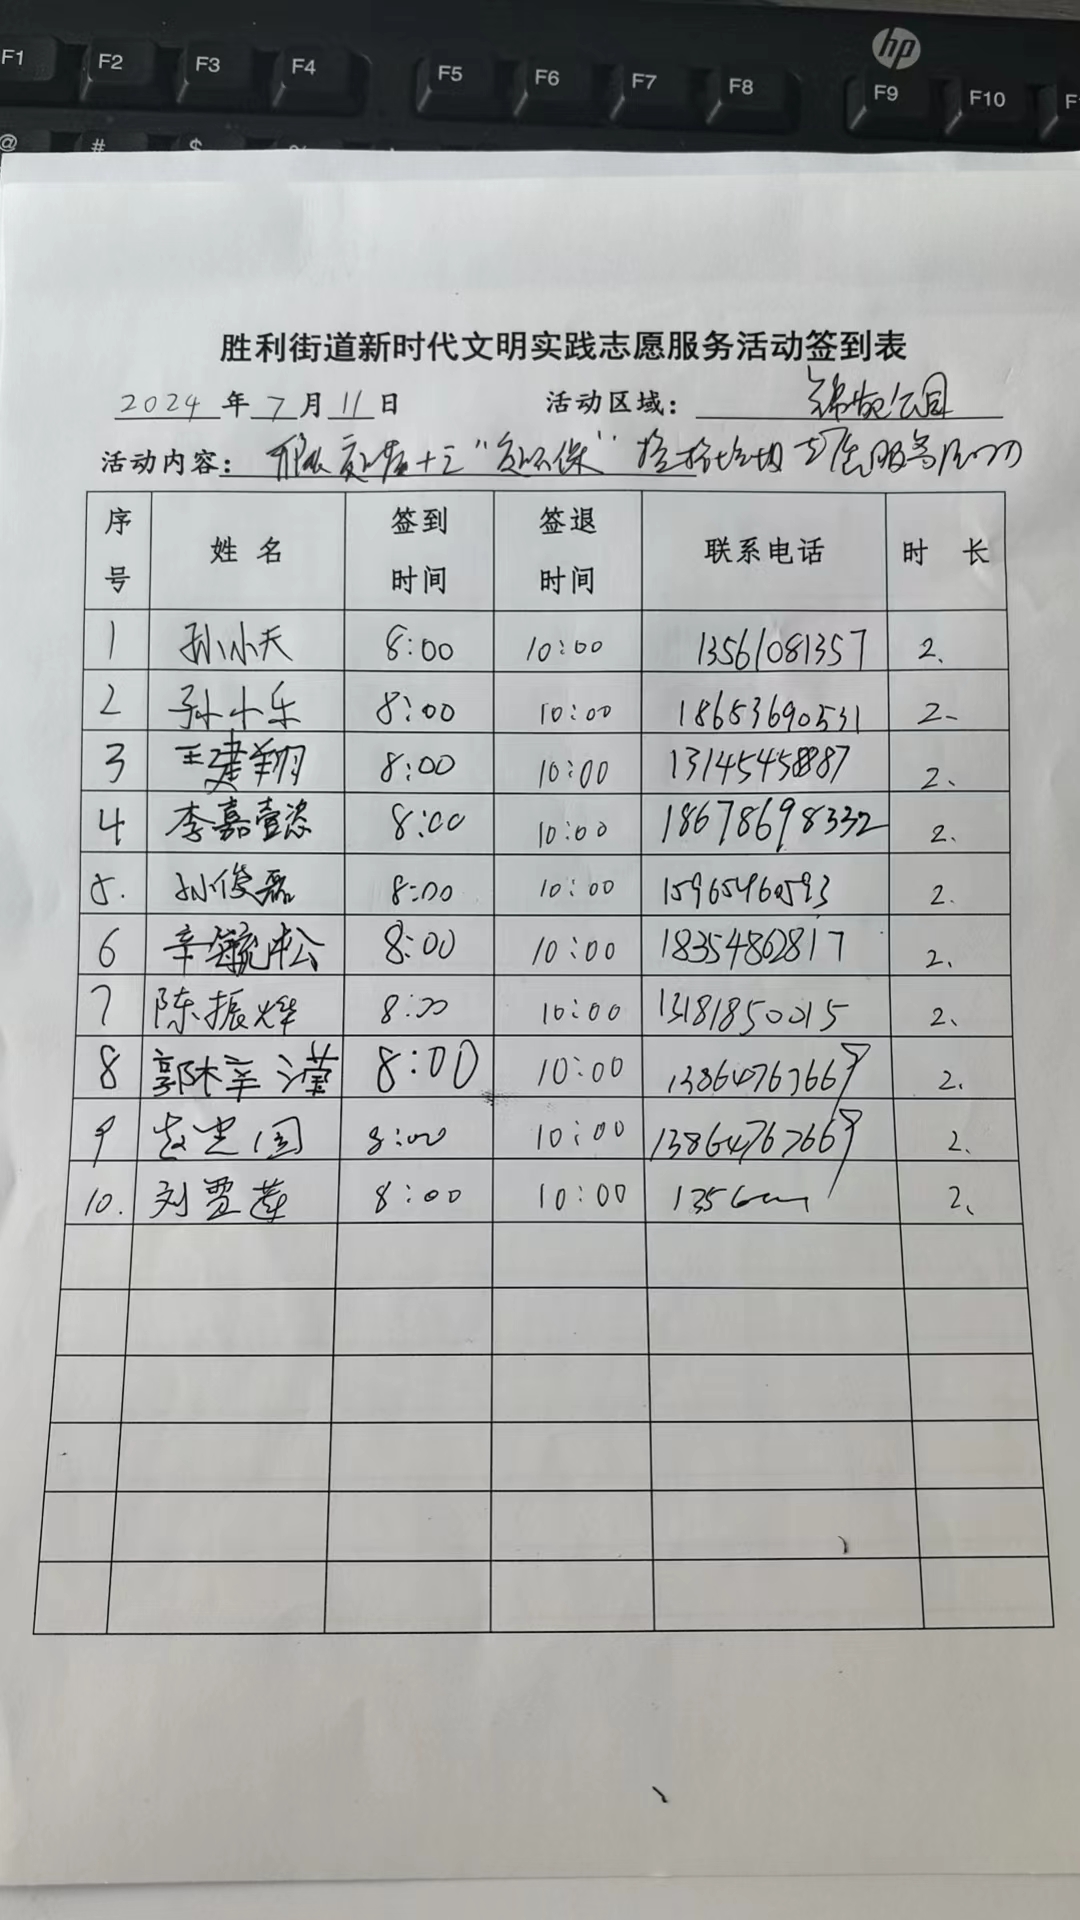 F1 F2 F3 F4 F5 F6 F7 F8 hp F9 F10 F
@ # $ %
胜利街道新时代文明实践志愿服务活动签到表
2024 年 7 月 11 日 活动区域: 公园
活动内容: 十三 "环保" 捡拾垃圾 志愿服务
序号 姓名 签到时间 签退时间 联系电话 时长
1 孙小天 8:00 10:00 13561081357 2.
2 孙小乐 8:00 10:00 18653690531 2.
3 王建翔 8:00 10:00 13145458887 2、
4 李嘉壹 8:00 10:00 18678698332 2.
5. 孙俊磊 8:00 10:00 15965460593 2.
6 辛毓淞 8:00 10:00 18354862817 2、
7 陈振烨 8:00 10:00 13181850015 2、
8 郭林辛滢 8:00 10:00 13864767669 2、
9 国 8:00 10:00 13864767669 2、
10. 刘雪莲 8:00 10:00 1356 2、